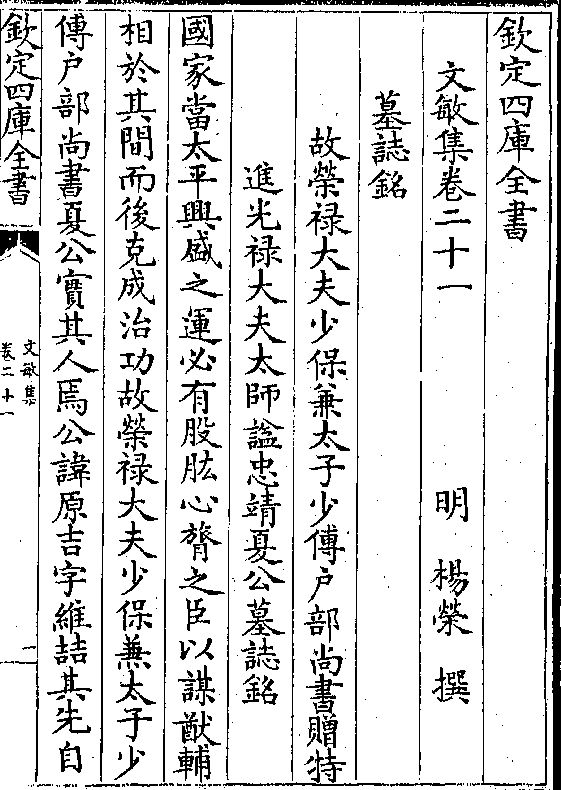 欽定四庫全書
文敏集卷二十一　明　楊榮　撰
墓誌銘
故榮禄大夫少保兼太子少傅户部尚書贈特
進光禄大夫太師諡忠靖夏公墓誌銘
國家當太平興盛之運必有股肱心膂之臣以謀猷輔
相於其間而後克成治功故榮禄大夫少保兼太子少
傅户部尚書夏公實其人焉公諱原吉字維喆其先自
欽定四庫全書
文敏集
卷二十一
一